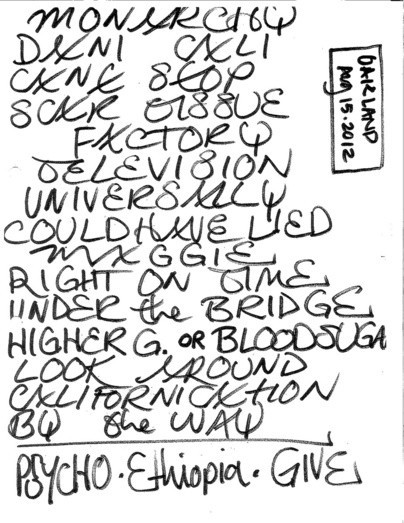 MONARCHY
DANI CALI
CANT STOP
SCAR TISSUE
FACTORY
TELEVISION
UNIVERSALLY
COULD HAVE LIED
MAGGIE
RIGHT ON TIME
UNDER the BRIDGE
HIGHER G. OR BLOODSUGA
LOOK AROUND
CALIFORNICATION
BY the WAY
PSYCHO · Ethiopia · GIVE
OAKLAND
AUG 15.2012